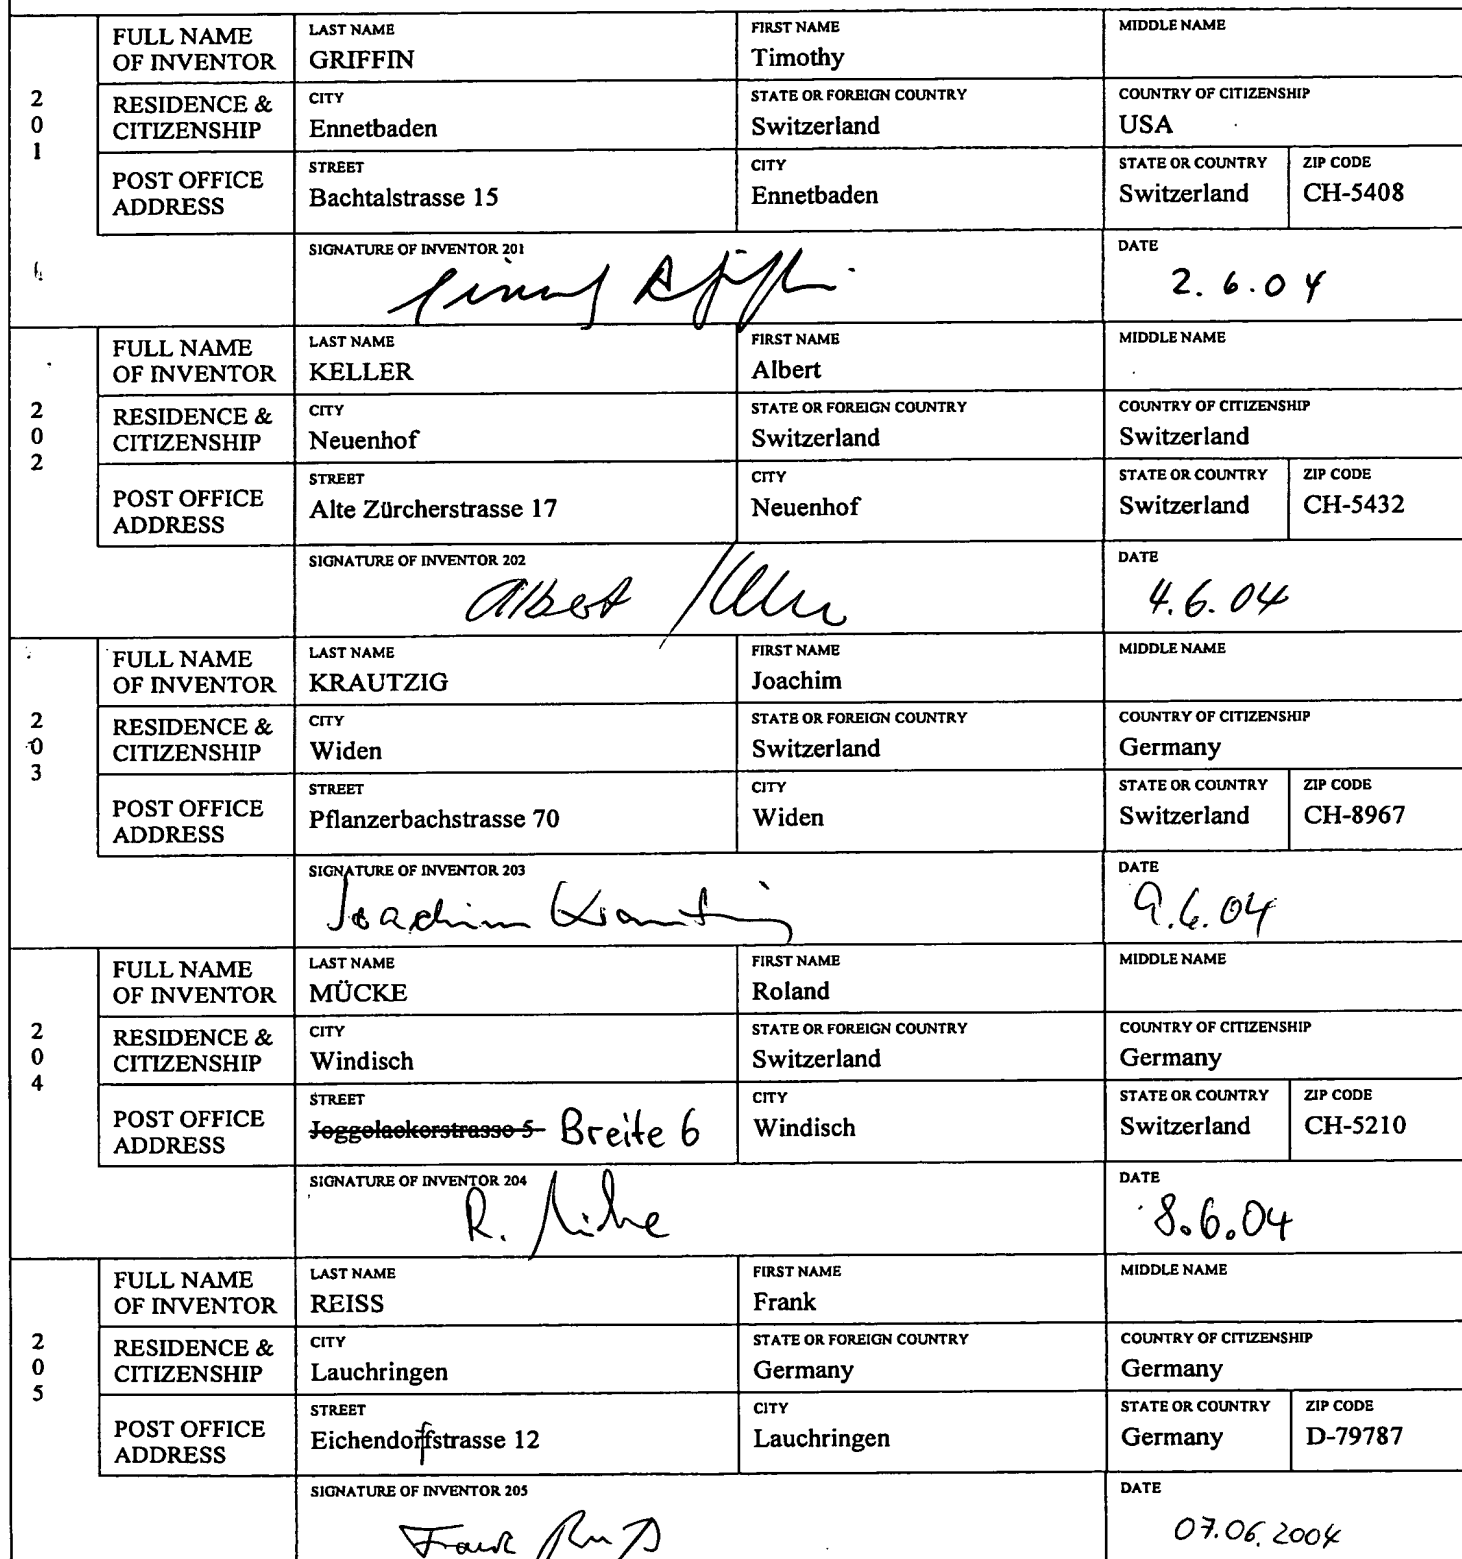 FULL NAME OF INVENTOR
LAST NAME
GRIFFIN
FIRST NAME
Timothy
MIDDLE NAME
201
RESIDENCE & CITIZENSHIP
CITY
Ennetbaden
STATE OR FOREIGN COUNTRY
Switzerland
COUNTRY OF CITIZENSHIP
USA
POST OFFICE ADDRESS
STREET
Bachtalstrasse 15
CITY
Ennetbaden
STATE OR COUNTRY
Switzerland
ZIP CODE
CH-5408
SIGNATURE OF INVENTOR 201
DATE
2.6.04
FULL NAME OF INVENTOR
LAST NAME
KELLER
FIRST NAME
Albert
MIDDLE NAME
202
RESIDENCE & CITIZENSHIP
CITY
Neuenhof
STATE OR FOREIGN COUNTRY
Switzerland
COUNTRY OF CITIZENSHIP
Switzerland
POST OFFICE ADDRESS
STREET
Alte Zürcherstrasse 17
CITY
Neuenhof
STATE OR COUNTRY
Switzerland
ZIP CODE
CH-5432
SIGNATURE OF INVENTOR 202
Albert Keller
DATE
4.6.04
FULL NAME OF INVENTOR
LAST NAME
KRAUTZIG
FIRST NAME
Joachim
MIDDLE NAME
203
RESIDENCE & CITIZENSHIP
CITY
Widen
STATE OR FOREIGN COUNTRY
Switzerland
COUNTRY OF CITIZENSHIP
Germany
POST OFFICE ADDRESS
STREET
Pflanzerbachstrasse 70
CITY
Widen
STATE OR COUNTRY
Switzerland
ZIP CODE
CH-8967
SIGNATURE OF INVENTOR 203
Joachim Krautzig
DATE
9.6.04
FULL NAME OF INVENTOR
LAST NAME
MÜCKE
FIRST NAME
Roland
MIDDLE NAME
204
RESIDENCE & CITIZENSHIP
CITY
Windisch
STATE OR FOREIGN COUNTRY
Switzerland
COUNTRY OF CITIZENSHIP
Germany
POST OFFICE ADDRESS
STREET
Joggelackerstrasse 5 Breite 6
CITY
Windisch
STATE OR COUNTRY
Switzerland
ZIP CODE
CH-5210
SIGNATURE OF INVENTOR 204
R. Mücke
DATE
8.6.04
FULL NAME OF INVENTOR
LAST NAME
REISS
FIRST NAME
Frank
MIDDLE NAME
205
RESIDENCE & CITIZENSHIP
CITY
Lauchringen
STATE OR FOREIGN COUNTRY
Germany
COUNTRY OF CITIZENSHIP
Germany
POST OFFICE ADDRESS
STREET
Eichendorffstrasse 12
CITY
Lauchringen
STATE OR COUNTRY
Germany
ZIP CODE
D-79787
SIGNATURE OF INVENTOR 205
Frank Reiß
DATE
07.06.2004